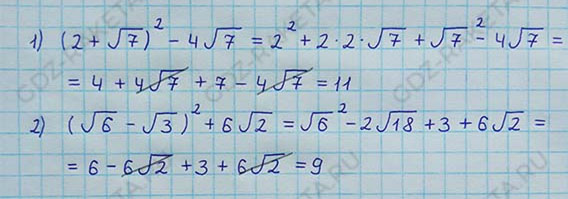 1) (2 + √7)² - 4√7 = 2² + 2·2·√7 + √7² - 4√7 =
= 4 + 4√7 + 7 - 4√7 = 11
2) (√6 - √3)² + 6√2 = √6² - 2√18 + 3 + 6√2 =
= 6 - 6√2 + 3 + 6√2 = 9